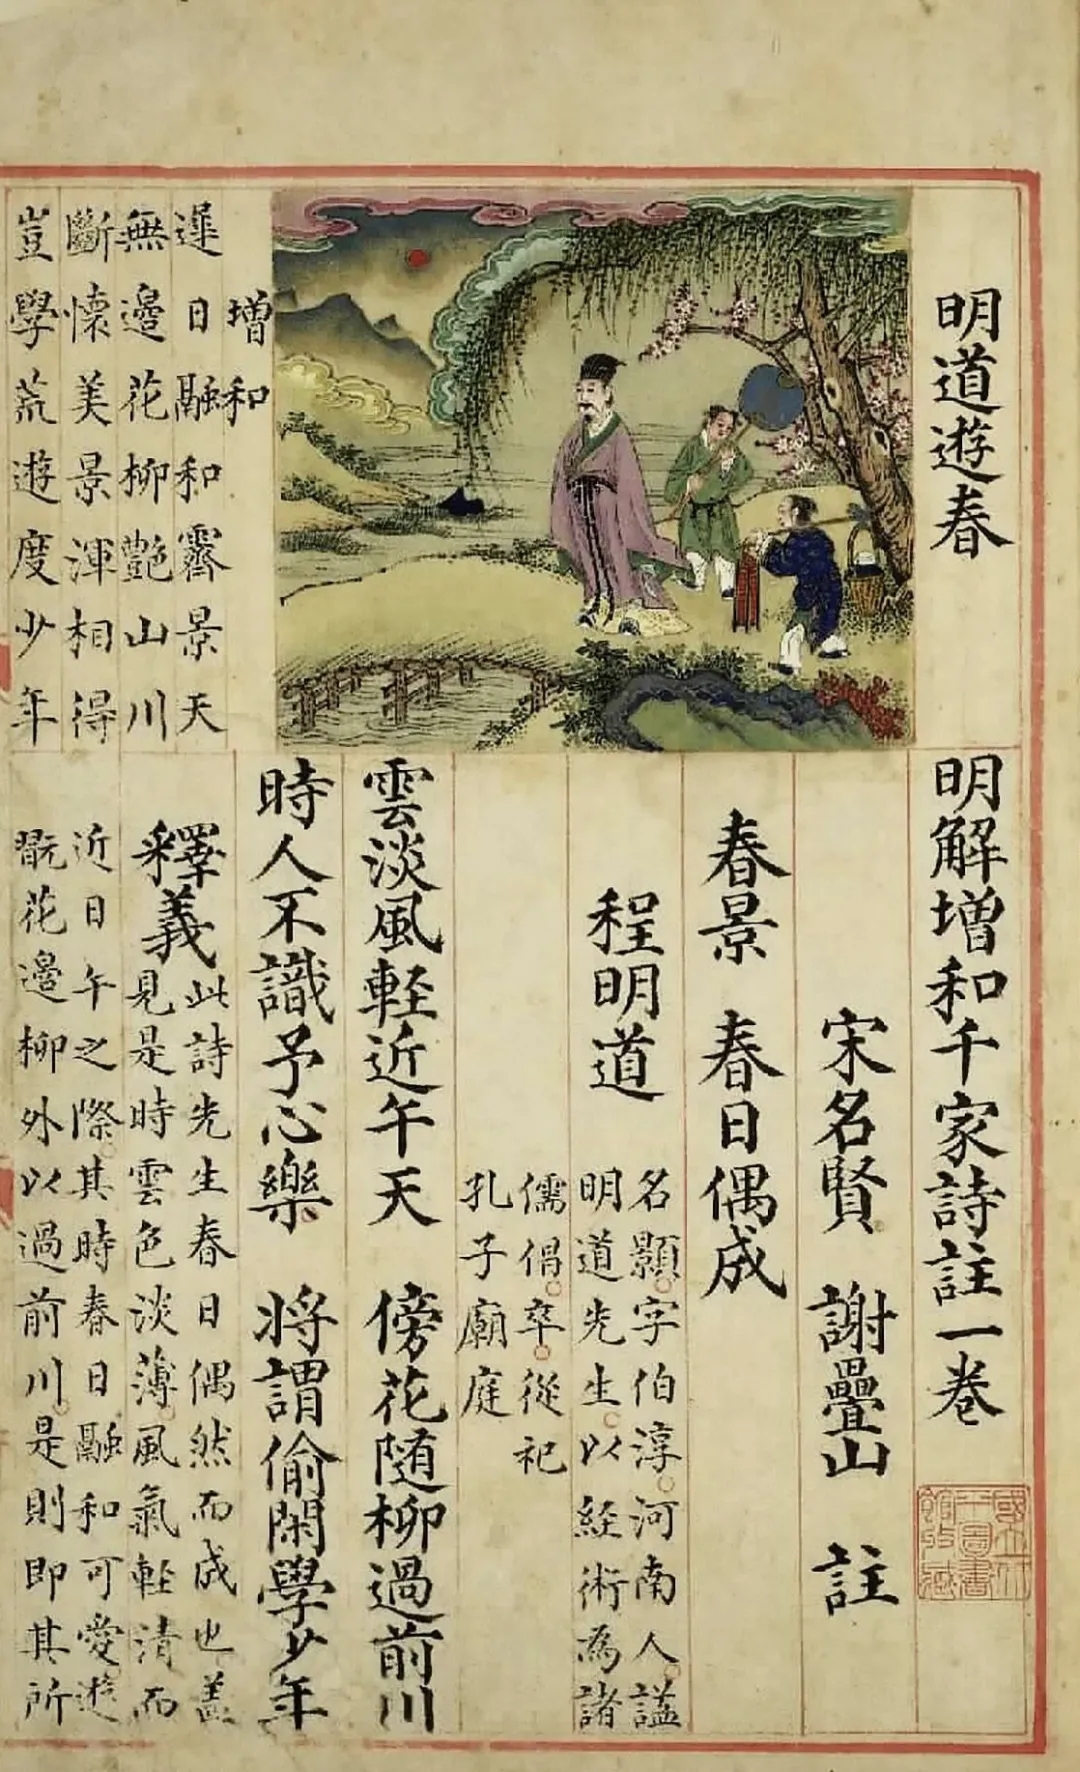 明道遊春
增和
遲日融和霽景天
無邊花柳艷山川
斷懷美景渾相得
豈學荒遊度少年
明解增和千家詩註一卷
國立北平圖書館收藏
宋名賢 謝疊山 註
春景 春日偶成
程明道
名顥字伯淳河南人謚
明道先生以経術為諸
儒倡卒從祀
孔子廟庭
雲淡風軽近午天 傍花随柳過前川
時人不識予心樂 将謂偷閑學少年
釋義
此詩先生春日偶然而成也盖
見是時雲色淡薄風氣軽清而
近日午之際其時春日融和可愛遊
翫花邊柳外以過前川是則即其所